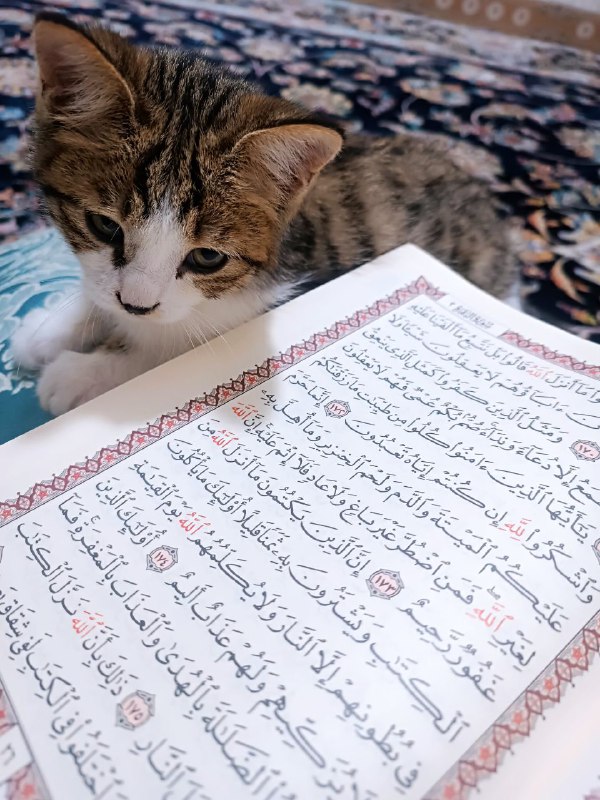 مَآ أَنزَلَ ٱللَّهُ قَالُوا۟ بَلْ نَتَّبِعُ مَآ أَلْفَيْنَا عَلَيْهِ
ءَابَآؤُهُمْ لَا يَعْقِلُونَ شَيْـًٔا وَلَا
١٧٠ وَمَثَلُ ٱلَّذِينَ كَفَرُوا۟ كَمَثَلِ ٱلَّذِى يَنْعِقُ
يَسْمَعُ إِلَّا دُعَآءً وَنِدَآءً صُمٌّۢ بُكْمٌ عُمْىٌ فَهُمْ لَا يَعْقِلُونَ
يَٰٓأَيُّهَا ٱلَّذِينَ ءَامَنُوا۟ كُلُوا۟ مِن طَيِّبَٰتِ مَا رَزَقْنَٰكُمْ
وَٱشْكُرُوا۟ لِلَّهِ إِن كُنتُمْ إِيَّاهُ تَعْبُدُونَ ١٧٢ إِنَّمَا حَرَّمَ
عَلَيْكُمُ ٱلْمَيْتَةَ وَٱلدَّمَ وَلَحْمَ ٱلْخِنزِيرِ وَمَآ أُهِلَّ بِهِۦ
لِغَيْرِ ٱللَّهِ فَمَنِ ٱضْطُرَّ غَيْرَ بَاغٍ وَلَا عَادٍ فَلَآ إِثْمَ عَلَيْهِ إِنَّ ٱللَّهَ
غَفُورٌ رَّحِيمٌ ١٧٣ إِنَّ ٱلَّذِينَ يَكْتُمُونَ مَآ أَنزَلَ ٱللَّهُ مِنَ
ٱلْكِتَٰبِ وَيَشْتَرُونَ بِهِۦ ثَمَنًا قَلِيلًا أُو۟لَٰٓئِكَ مَا يَأْكُلُونَ
فِى بُطُونِهِمْ إِلَّا ٱلنَّارَ وَلَا يُكَلِّمُهُمُ ٱللَّهُ يَوْمَ ٱلْقِيَٰمَةِ
وَلَا يُزَكِّيهِمْ وَلَهُمْ عَذَابٌ أَلِيمٌ ١٧٤ أُو۟لَٰٓئِكَ ٱلَّذِينَ
ٱلضَّلَٰلَةَ بِٱلْهُدَىٰ وَٱلْعَذَابَ بِٱلْمَغْفِرَةِ فَمَآ
ٱلنَّارِ ١٧٥ ذَٰلِكَ بِأَنَّ ٱللَّهَ نَزَّلَ ٱلْكِتَٰبَ
ٱخْتَلَفُوا۟ فِى ٱلْكِتَٰبِ لَفِى شِقَاقٍۭ